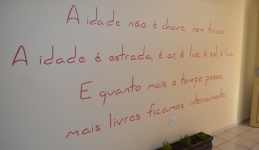 A idade não é chave, nem trinco.
A idade é estrada, é ar, é luz, é sol, é lua.
E quanto mais o tempo passa,
mais livres ficamos internamente.